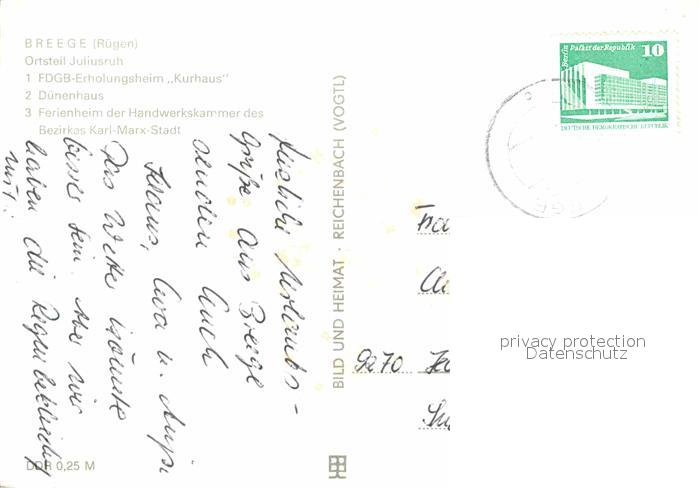 BREEGE (Rügen)
Ortsteil Juliusruh
1 FDGB-Erholungsheim „Kurhaus"
2 Dünenhaus
3 Ferienheim der Handwerkskammer des
Bezirkes Karl-Marx-Stadt
Herzliche Urlaubs-
grüße aus Breege
senden Euch
u.
Das Wetter könnte
besser sein. Aber wir
haben die
mit.
DDR 0,25 M
BILD UND HEIMAT · REICHENBACH (VOGTL)
Berlin Palast der Republik 10
DEUTSCHE DEMOKRATISCHE REPUBLIK
9270
privacy protection
Datenschutz